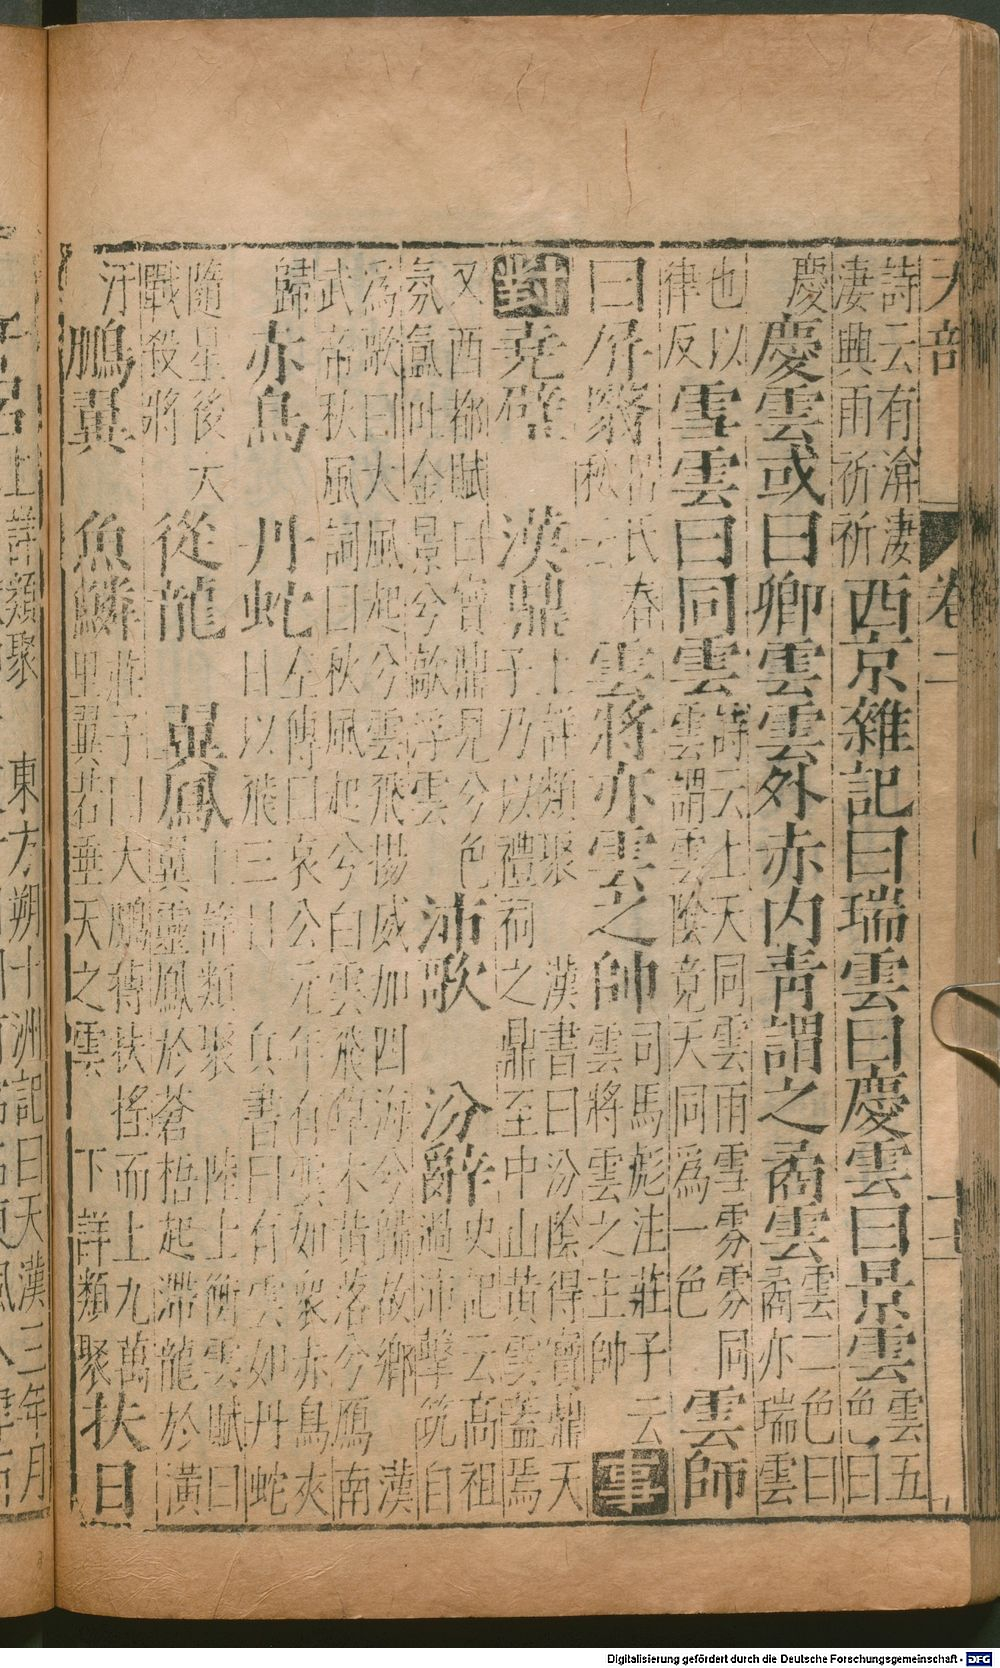 天部 卷二
詩云有渰淒淒興雨祈祈西京雜記曰瑞雲曰慶雲曰景雲雲五色曰
慶慶雲或曰卿雲雲外赤內青謂之矞雲雲二色曰矞亦瑞雲
也以律反雪雲曰同雲詩云上天同雲雨雪雰雰同雲謂雲陰竟天同爲一色雲師
曰屏翳呂氏春秋云雲將亦雲之帥司馬彪注莊子云雲將雲之主帥事
對堯壁 漢鼎上詳類聚 漢書曰汾陰得寶鼎天子乃以禮祠之鼎至中山黃雲蓋焉
又西都賦曰寶鼎見兮色氛氳吐金景兮歊浮雲沛歌 汾辭史記云高祖過沛擊筑自
爲歌曰大風起兮雲飛揚威加四海兮歸故鄉 漢武帝秋風詞曰秋風起兮白雲飛草木黃落兮鴈南
歸赤烏 丹蛇左傳曰哀公元年有雲如衆赤鳥夾日以飛三日 兵書曰有雲如丹蛇
隨星後大戰殺將從龍 翼鳳上詳類聚 陸士衡雲賦曰翼靈鳳於蒼梧起滯龍於潢
汙鵬翼 魚鱗莊子曰大鵬摶扶搖而上九萬里翼若垂天之雲 下詳類聚扶日
上詳類聚 東方朔十洲記曰天漢三年月
Digitalisierung gefördert durch die Deutsche Forschungsgemeinschaft - DFG